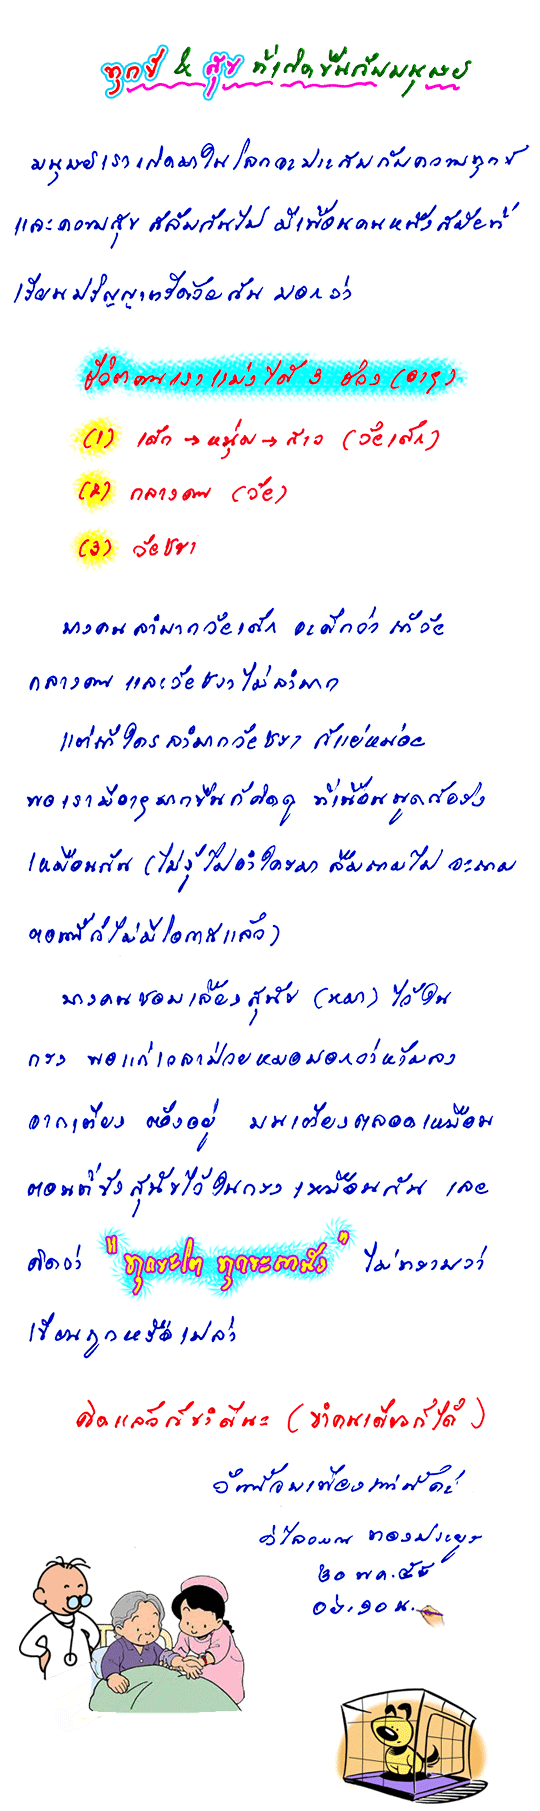 ทุกข์ & สุข ที่เกิดขึ้นกับมนุษย์
มนุษย์เราเกิดมาในโลกจะประสบกับความทุกข์
และความสุข สลับกันไป มีเพื่อนคนหนึ่งสมัยที่
เรียนปริญญาตรีด้วยกัน บอกว่า
ชีวิตคนเราแบ่งได้ 3 ช่วง (อายุ)
(1) เด็ก → หนุ่ม → สาว (วัยเด็ก)
(2) กลางคน (วัย)
(3) วัยชรา
บางคนลำบากวัยเด็ก จะดีกว่า ถ้าวัย
กลางคน และวัยชราไม่ลำบาก
แต่ถ้าใครลำบากวัยชรา ก็แย่หน่อย
พอเรามีอายุมากขึ้นก็คิดดู ที่เพื่อนพูดก็จริง
เหมือนกัน (ไม่รู้ไปจำใครมา ลืมถามไป จะถาม
ตอนนี้ก็ไม่มีโอกาสแล้ว)
บางคนชอบเลี้ยงสุนัข (หมา) ไว้ใน
กรง พอแก่เวลาป่วยหมอบอกว่าห้ามลง
จากเตียง ต้องอยู่ บนเตียงตลอดเหมือน
ตอนที่ขังสุนัขไว้ในกรง เหมือนกัน เลย
คิดว่า " ทุกขะโต ทุกขะฐานัง " ไม่ทราบว่า
เขียนถูกหรือเปล่า
คิดแล้วก็ขำดีนะ (ขำคนเดียวก็ได้)
วิไลวรรณ
๒๐ พ.ค. ๕๕
น.